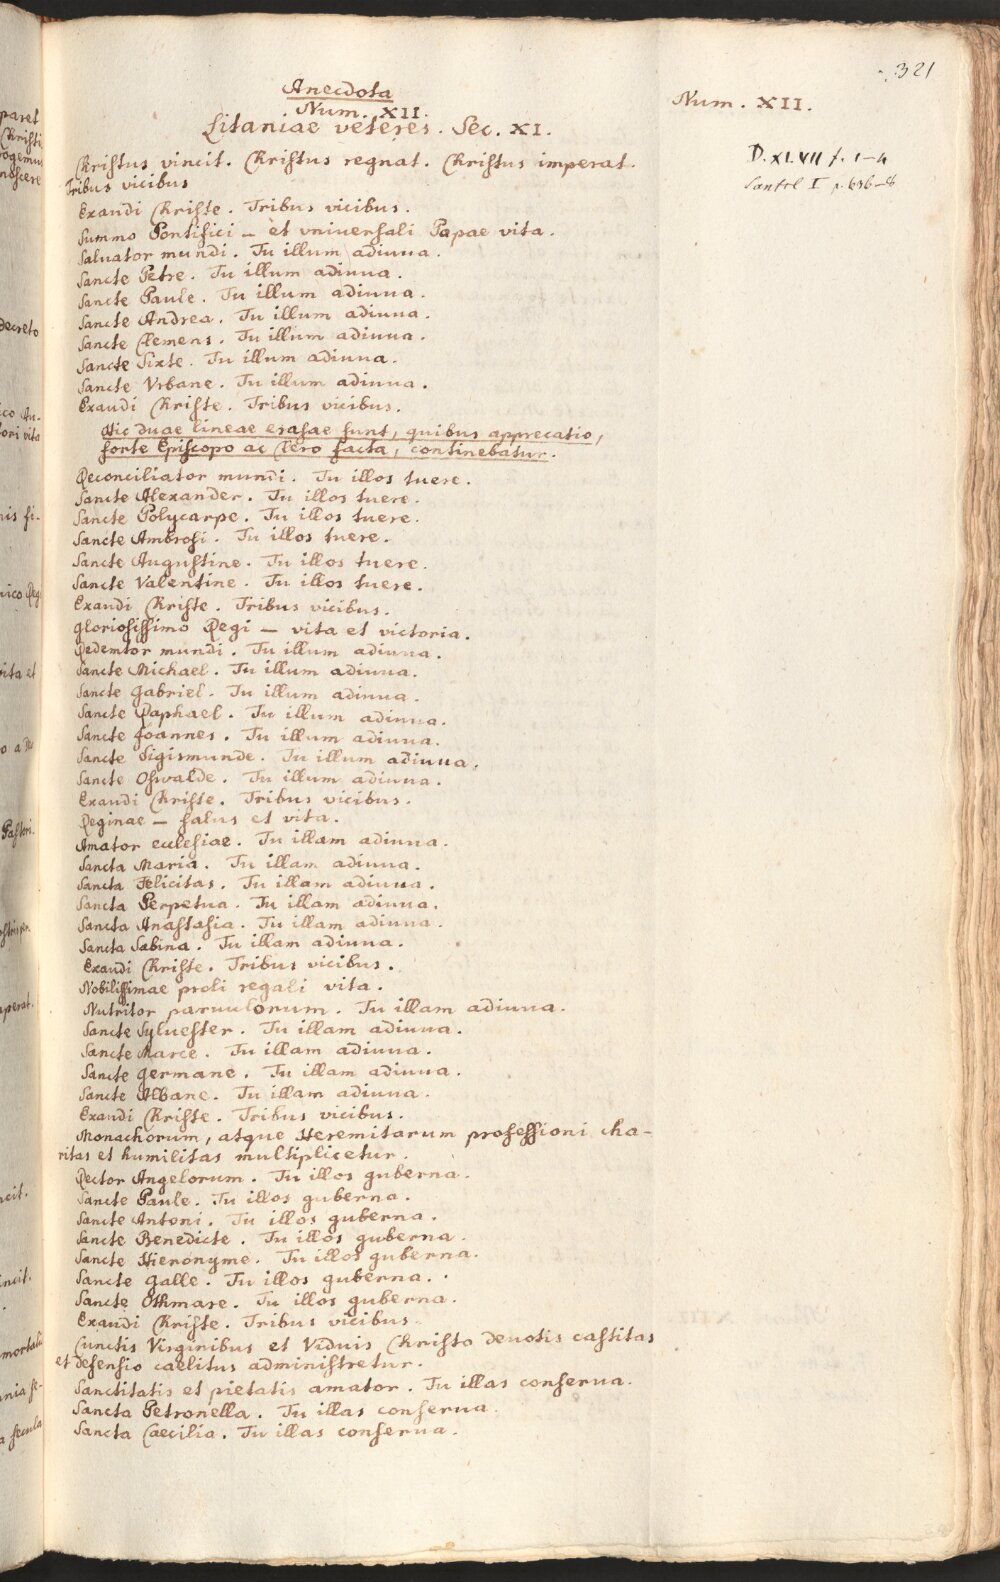 321
Anecdota
Num. XII.
Litaniae veteres. Sec. XI.
Num. XII.
D. XLVII f. 1-4
I p. 636-8
Christus vincit. Christus regnat. Christus imperat.
Tribus vicibus
Exaudi Christe. Tribus vicibus.
Summo Pontifici – et vniuersali Papae vita.
Saluator mundi. Tu illum adiuua.
Sancte Petre. Tu illum adiuua.
Sancte Paule. Tu illum adiuua.
Sancte Andrea. Tu illum adiuua.
Sancte Clemens. Tu illum adiuua.
Sancte Sixte. Tu illum adiuua.
Sancte Vrbane. Tu illum adiuua.
Exaudi Christe. Tribus vicibus.
Hic duae lineae erasae sunt, quibus apprecatio,
forte Episcopo ac Clero facta, continebatur.
Reconciliator mundi. Tu illos tuere.
Sancte Alexander. Tu illos tuere.
Sancte Polycarpe. Tu illos tuere.
Sancte Ambrosi. Tu illos tuere.
Sancte Augustine. Tu illos tuere.
Sancte Valentine. Tu illos tuere.
Exaudi Christe. Tribus vicibus.
Gloriosissimo Regi – vita et victoria.
Redemtor mundi. Tu illum adiuua.
Sancte Michael. Tu illum adiuua.
Sancte Gabriel. Tu illum adiuua.
Sancte Raphael. Tu illum adiuua.
Sancte Joannes. Tu illum adiuua.
Sancte Sigismunde. Tu illum adiuua.
Sancte Oswalde. Tu illum adiuua.
Exaudi Christe. Tribus vicibus.
Reginae – salus et vita.
Amator ecclesiae. Tu illam adiuua.
Sancta Maria. Tu illam adiuua.
Sancta Felicitas. Tu illam adiuua.
Sancta Perpetua. Tu illam adiuua.
Sancta Anastasia. Tu illam adiuua.
Sancta Sabina. Tu illam adiuua.
Exaudi Christe. Tribus vicibus.
Nobilissimae proli regali vita.
Nutritor paruulorum. Tu illam adiuua.
Sancte Syluester. Tu illam adiuua.
Sancte Marce. Tu illam adiuua.
Sancte Germane. Tu illam adiuua.
Sancte Albane. Tu illam adiuua.
Exaudi Christe. Tribus vicibus.
Monachorum, atque Heremitarum professioni cha-
ritas et humilitas multiplicetur.
Rector Angelorum. Tu illos guberna.
Sancte Paule. Tu illos guberna.
Sancte Antoni. Tu illos guberna.
Sancte Benedicte. Tu illos guberna.
Sancte Hieronyme. Tu illos guberna.
Sancte Galle. Tu illos guberna.
Sancte Othmare. Tu illos guberna.
Exaudi Christe. Tribus vicibus.
Cunctis Virginibus et Viduis Christo deuotis castitas
et defensio caelitus administretur.
Sanctitatis et pietatis amator. Tu illas conserua.
Sancta Petronella. Tu illas conserua.
Sancta Caecilia. Tu illas conserua.